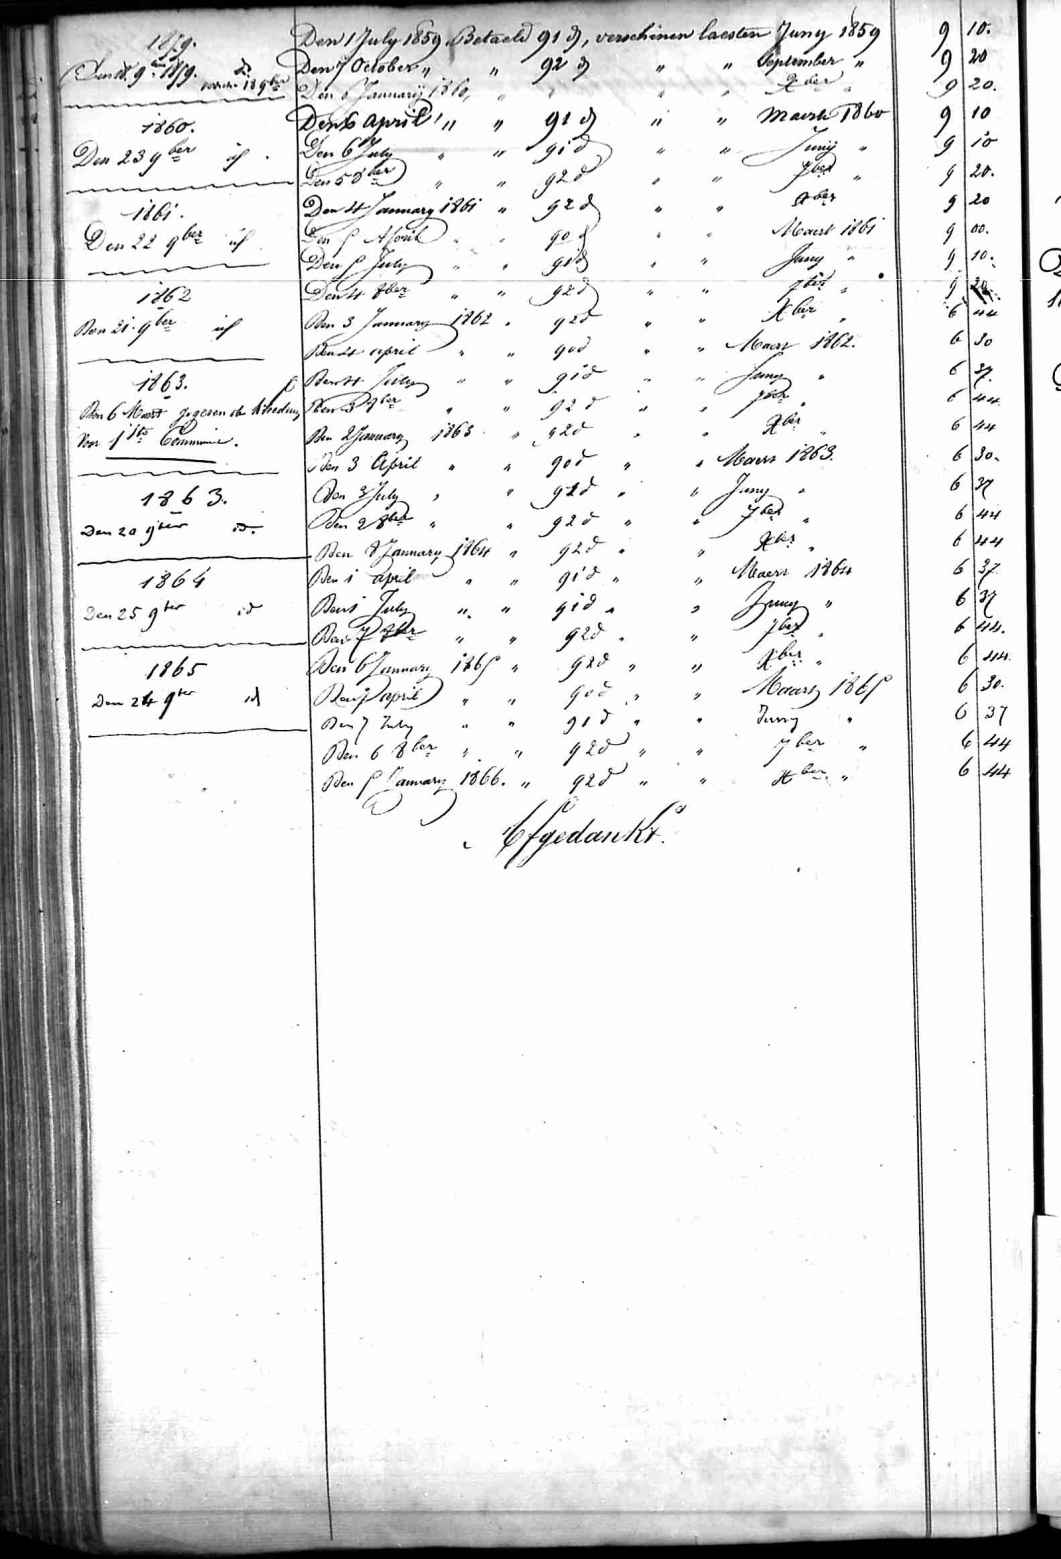 1859.
Den 9 1859.
1860.
Den 23 9ber id.
1861.
Den 22 9ber id
1862
Den 21 9ber id
1863.
Den 6 Maert gegeven
Voor 1ste Communie.
1863.
Den 20 9ber id.
1864
Den 25 9ber id
1865
Den 24 9ber id
Den 1 July 1859 Betaeld 91 d, verschenen laesten Juny 1859 9 10.
Den 7 October „ „ 92 d „ „ September „ 9 20
Den January 1860, „ „ „ Xber „ 9 20.
Den 6 April „ „ 91 d „ „ Maert 1860 9 10
Den 6 July „ „ 91 d „ „ Juny „ 9 10
Den 5 8ber „ „ 92 d „ „ 7ber „ 9 20.
Den 4 January 1861 „ 92 d „ „ Xber 9 20
Den 5 April „ „ 90 d „ „ Maert 1861 9 00.
Den 5 July „ „ 91 d „ „ Juny „ 9 10.
Den 4 8ber „ „ 92 d „ „ 7ber „ 9 20
Den 3 January 1862 „ 92 d „ „ Xber „ 6 44
Den 4 april „ „ 90 d „ „ Maert 1862. 6 30
Den 4 July „ „ 91 d „ „ Juny „ 6 37.
Den 3 8ber „ „ 92 d „ „ 7ber „ 6 44
Den 2 January 1863 „ 92 d „ „ Xber „ 6 44
Den 3 April „ „ 90 d „ „ Maert 1863. 6 30.
Den 3 July „ „ 91 d „ „ Juny „ 6 37
Den 2 8ber „ „ 92 d „ „ 7ber „ 6 44
Den 8 January 1864 „ 92 d „ „ Xber „ 6 44
Den 1 april „ „ 91 d „ „ Maert 1864 6 37
Den 1 July „ „ 91 d „ „ Juny „ 6 37
Den 7 8ber „ „ 92 d „ „ 7ber „ 6 44.
Den 6 January 1865 „ 92 d „ „ Xber „ 6 44.
Den 7 april „ „ 90 d „ „ Maert 1865 6 30.
Den 7 July „ „ 91 d „ „ Juny „ 6 37
Den 6 8ber „ „ 92 d „ „ 7ber „ 6 44
Den 5 January 1866. „ 92 d „ „ Xber „ 6 44
Afgedankt.